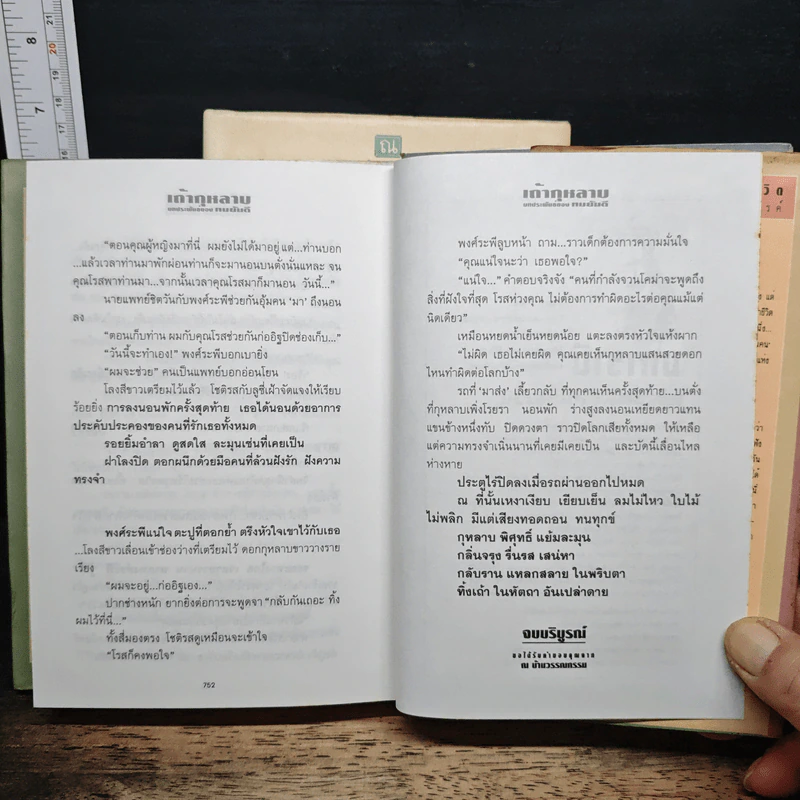 8
7
21
20
19
18
17
16
ณ
เถ้ากุหลาบ
บทประพันธ์ของ ทมยันตี
“ตอนคุณผู้หญิงมาที่นี่ ผมยังไม่ได้มาอยู่ แต่...ท่านบอก
...แล้วเวลาท่านมาพักผ่อนท่านก็จะมานอนบนตั่งนั่นแหละ จน
คุณโรสพาท่านมา...จากนั้นเวลาคุณโรสมาก็มานอน วันนี้...”
นายแพทย์ชิตวันกับพงศ์ระพีช่วยกันอุ้มคน ‘มา’ ถึงนอน
ลง
“ตอนเก็บท่าน ผมกับคุณโรสช่วยกันก่ออิฐปิดช่องเก็บ...”
“วันนี้จะทำเอง!” พงศ์ระพีบอกเบายิ่ง
“ผมจะช่วย” คนเป็นแพทย์บอกอ่อนโยน
โลงสีขาวเตรียมไว้แล้ว โชติรสกับลูซี่เฝ้าจัดแจงให้เรียบ
ร้อยยิ่ง การลงนอนพักครั้งสุดท้าย เธอได้นอนด้วยอาการ
ประคับประคองของคนที่รักเธอทั้งหมด
รอยยิ้มอำลา ดูสดใส ละมุนเช่นที่เคยเป็น
ฝาโลงปิด ตอกผนึกด้วยมือคนที่ล้วนฝังรัก ฝังความ
ทรงจำ
พงศ์ระพีแน่ใจ ตะปูที่ตอกย้ำ ตรึงหัวใจเขาไว้กับเธอ
...โลงสีขาวเลื่อนเข้าช่องว่างที่เตรียมไว้ ดอกกุหลาบขาววางราย
เรียง
“ผมจะอยู่...ก่ออิฐเอง...”
ปากช่างหนัก ยากยิ่งต่อการจะพูดจา “กลับกันเถอะ ทิ้ง
ผมไว้ที่นี่...”
ทั้งสี่มองตรง โชติรสดูเหมือนจะเข้าใจ
“โรสก็คงพอใจ”
752
เถ้ากุหลาบ
บทประพันธ์ของ ทมยันตี
พงศ์ระพีลูบหน้า ถาม...ราวเด็กต้องการความมั่นใจ
“คุณแน่ใจนะว่า เธอพอใจ?”
“แน่ใจ...” คำตอบจริงจัง “คนที่กำลังจวนโคม่าจะพูดถึง
สิ่งที่ฝังใจที่สุด โรสห่วงคุณ ไม่ต้องการทำผิดอะไรต่อคุณแม้แต่
นิดเดียว”
เหมือนหยดน้ำเย็นหยดน้อย แตะลงตรงหัวใจแห้งผาก
“ไม่ผิด เธอไม่เคยผิด คุณเคยเห็นกุหลาบแสนสวยดอก
ไหนทำผิดต่อโลกบ้าง”
รถที่ ‘มาส่ง’ เลี้ยวกลับ ที่ทุกคนเห็นครั้งสุดท้าย...บนตั่ง
ที่กุหลาบเพิ่งโรยรา นอนพัก ร่างสูงลงนอนเหยียดยาวแทน
แขนข้างหนึ่งทับ ปิดดวงตา ราวปิดโลกเสียทั้งหมด ให้เหลือ
แต่ความทรงจำเนิ่นนานที่เคยมีเคยเป็น และบัดนี้เลื่อนไหล
ห่างหาย
ประตูไร่ปิดลงเมื่อรถผ่านออกไปหมด
ณ ที่นั้นเหงาเงียบ เยียบเย็น ลมไม่ไหว ใบไม้
ไม่พลิก มีแต่เสียงทอดถอน ทนทุกข์
กุหลาบ พิศุทธิ์ แย้มละมุน
กลิ่นจรุง รื่นรส เสน่หา
กลับราน แหลกสลาย ในพริบตา
ทิ้งเถ้า ในหัตถา อันเปล่าดาย
จบบริบูรณ์
ขอได้รับคำขอบคุณจาก
ณ บ้านวรรณกรรม